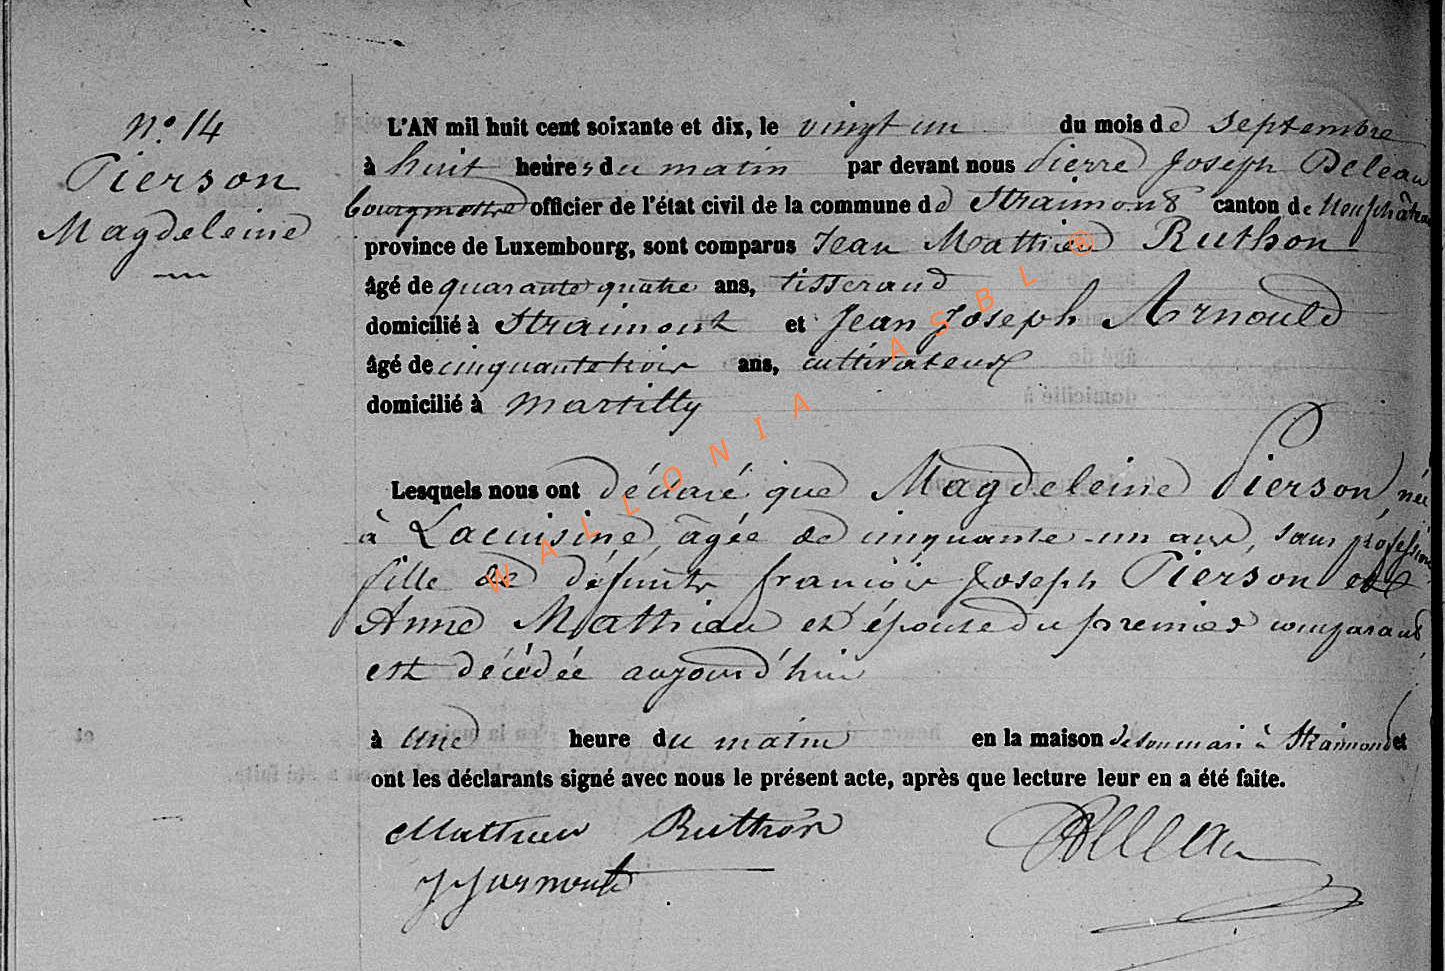 N.° 14
Pierson
Magdeleine
L'AN mil huit cent soixante et dix, le vingt un du mois de Septembre
à huit heures du matin par devant nous Pierre Joseph Deleau
bourgmestre officier de l'état civil de la commune de Straimont canton de Neufchâteau
province de Luxembourg, sont comparus Jean Mathieu Ruthon
âgé de quarante quatre ans, tisserand
domicilié à Straimont et Jean Joseph Arnould
âgé de cinquante trois ans, cultivateur
domicilié à Martilly
Lesquels nous ont déclaré que Magdeleine Pierson, née
à Lacuisine, âgée de cinquante-un ans, sans profession
fille de défunts françois Joseph Pierson et
Anne Mathieu et épouse du premier comparant
est décédée aujourd'hui
à une heure du matin en la maison de son mari à Straimont et
ont les déclarants signé avec nous le présent acte, après que lecture leur en a été faite.
Mathieu Ruthon
J J arnould
Deleau
WALLONIA ASBL ®